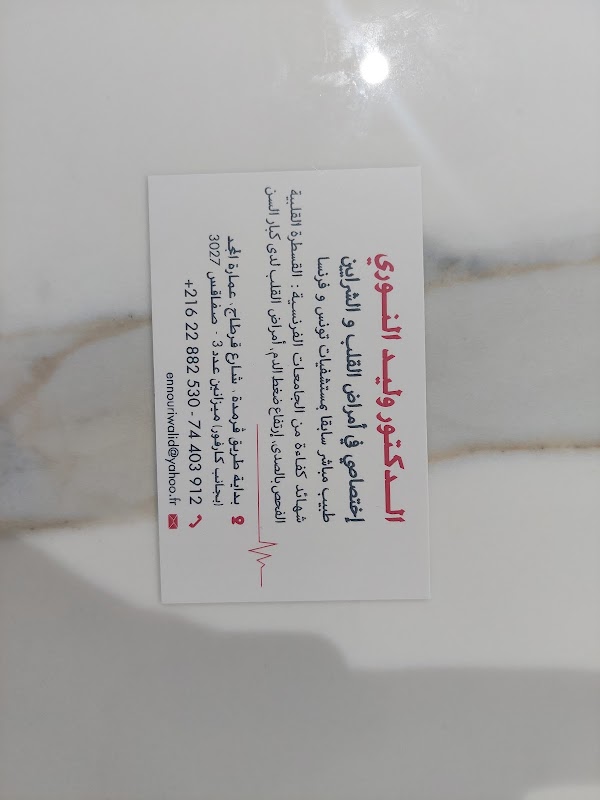 الـدكتور وليـد النـوري
إختصاصي في أمراض القلب و الشرايين
طبيب مباشر سابقا بمستشفيات تونس و فرنسا
شهائد كفاءة من الجامعات الفرنسية : القسطرة القلبية
الفحص بالصدى، إرتفاع ضغط الدم، أمراض القلب لدى كبار السن
بداية طريق ڨرمدة ، شارع قرطاج، عمارة المجد
(بجانب كارفور) ميزانين عدد 3 - صفاقس 3027
+216 22 882 530 - 74 403 912
ennouriwalid@yahoo.fr